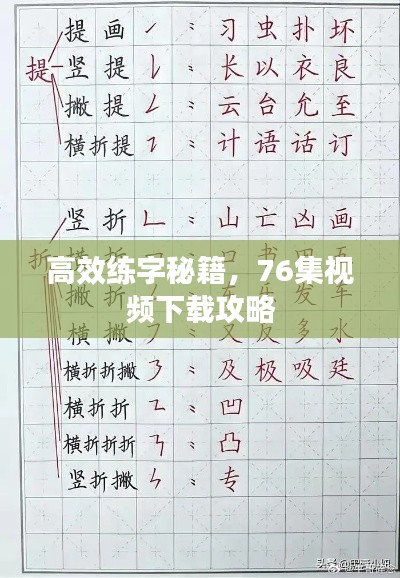 提画㇀：习虫扑坏
提 竖提㇙：长以衣良
撇提𠃋：云台允至
横折提㇊：计语话订
竖折𠃊：山亡凶画
折
高效练字秘籍，76集视
频下载攻略
横撇㇇：又反多水
横折折撇㇋：及极吸廷
横折折㇍：凹
横折折折㇎：凸
竖折撇ㄣ：专
头条